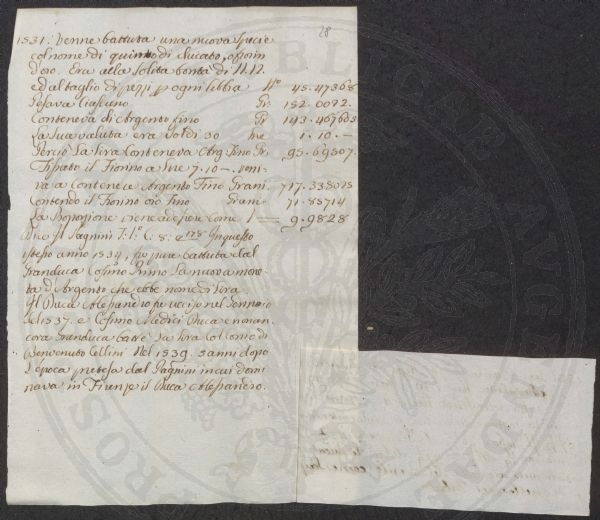 28
1531. Venne battuta una nuova specie
col nome di quinto di ducato, o fiorin
d'oro. Era alla solita bontà di 11.12.
ed al taglio di pezzi p ogni libbra No 45.47368
Pesava ciascuno Gr. 152.0092.
Conteneva di Argento fino Gr 143.467603
La sua valuta era soldi 30 lire 1.10.—
Perciò La Lira Conteneva Arg. Fino Gr. 95.69507.
Tassato il Fiorino a lire 7.10—. veni-
va a contenere Argento Fino Grani. 717.338025
Contendo il Fiorino oro Fino Grani 71.85714
La Proporzione viene ad esser come 1 — 9.9828
Dice Il Pagnini T. C. 8. 178 In questo
istesso anno 1534, fu pure battuta dal
Granduca Cosimo Primo La nuova mone-
ta d'Argento che ebbe nome di Lira.
Il Duca Alessandro fu ucciso nel Gennaio
del 1537. e Cosimo Medici Duca e non an-
cora Granduca batté La Lira Col Conio di
Benvenuto Cellini Nel 1539. 5 anni dopo
L'epoca pretesa dal Pagnini in cui domi-
nava in Firenze il Duca Alessandro.